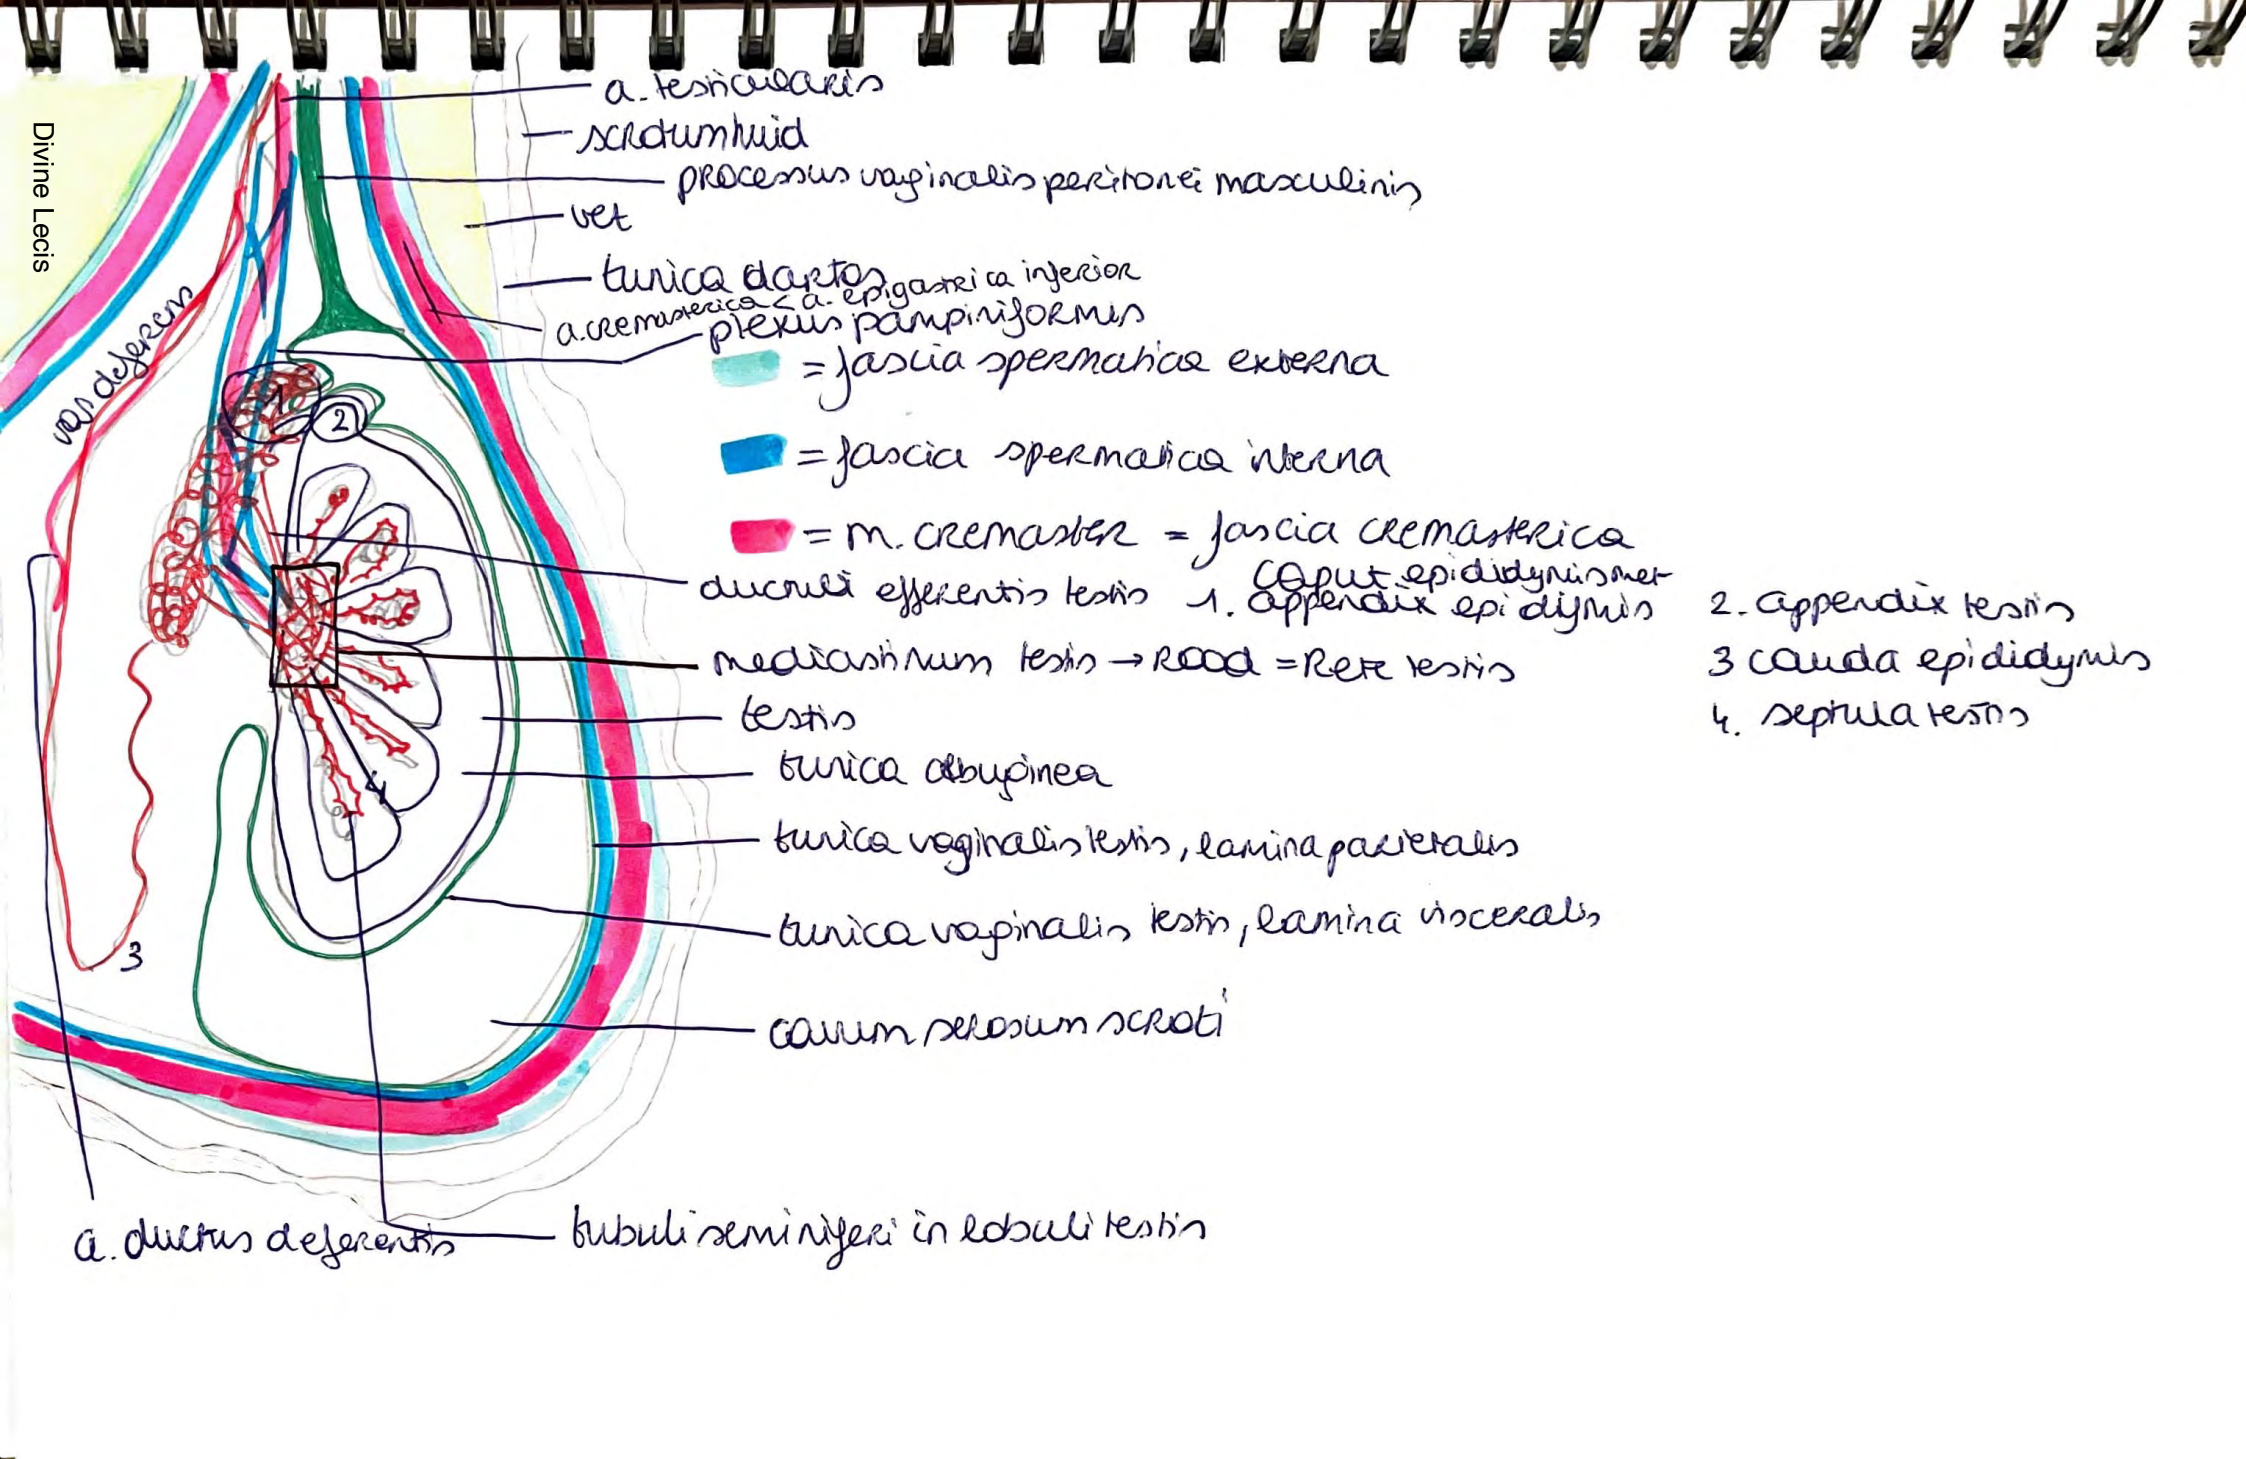 Divine Lecis
a. testicularis
scrotumhuid
processus vaginalis peritonei masculinis
vet
tunica dartos
a. cremasterica < a. epigastrica inferior
plexus pampiniformis
vas deferens
= fascia spermatica externa
= fascia spermatica interna
= m. cremaster = fascia cremasterica
ductuli efferentis testis
1. caput epididymis met
appendix epididymis
2. appendix testis
mediastinum testis → rood = Rete testis
3 cauda epididymis
testis
4. septula testis
tunica albuginea
tunica vaginalis testis, lamina parietalis
tunica vaginalis testis, lamina visceralis
cavum serosum scroti
a. ductus deferentis
tubuli seminiferi in lobuli testis
1
2
3
4